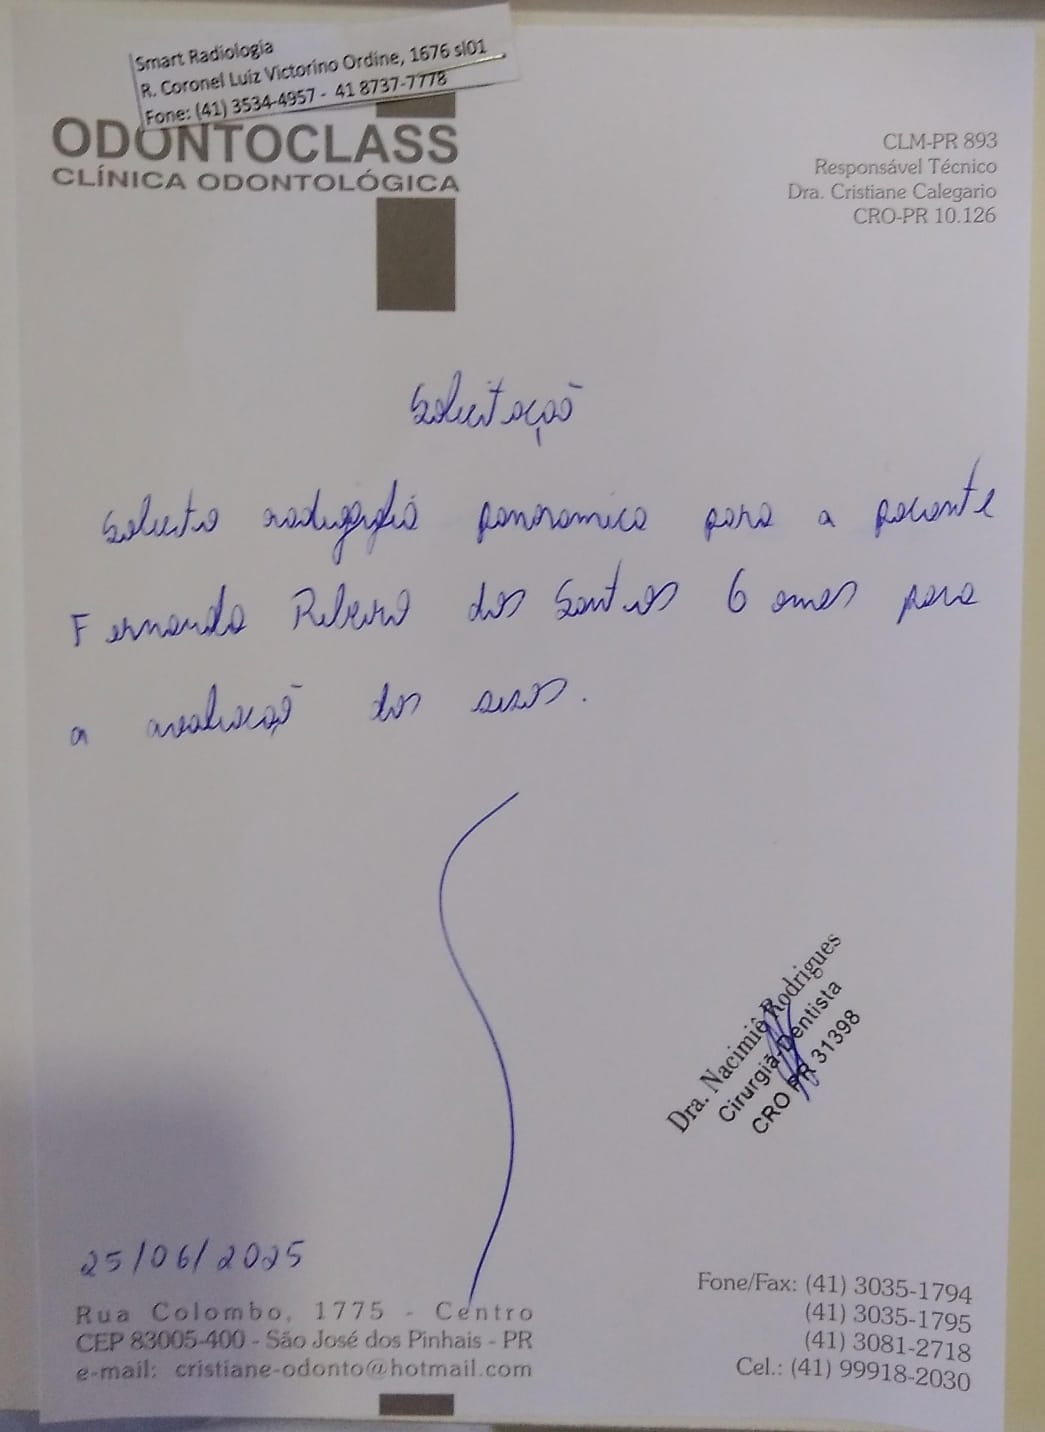 Smart Radiologia
R. Coronel Luiz Victorino Ordine, 1676 sl01
Fone: (41) 3534-4957 - 41 8737-7778
ODONTOCLASS
CLÍNICA ODONTOLÓGICA
CLM-PR 893
Responsável Técnico
Dra. Cristiane Calegario
CRO-PR 10.126
Solicitação
Solicito radiografia panoramica para a paciente
Fernanda Ribeiro dos Santos 6 anos para
a avaliação dos sisos.
Dra. Nacimiê Rodrigues
Cirurgiã-Dentista
CRO PR 31398
25/06/2025
Rua Colombo, 1775 - Centro
CEP 83005-400 - São José dos Pinhais - PR
e-mail: cristiane-odonto@hotmail.com
Fone/Fax: (41) 3035-1794
(41) 3035-1795
(41) 3081-2718
Cel.: (41) 99918-2030